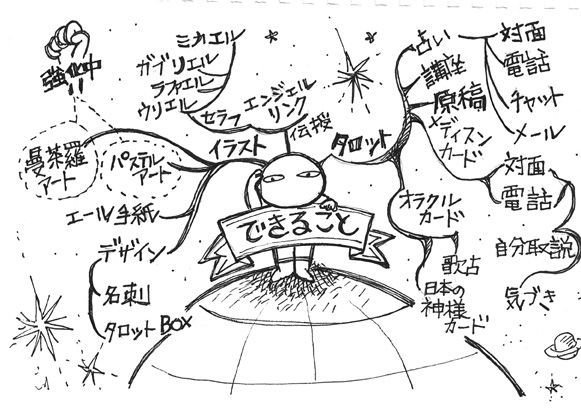 ミカエル
ガブリエル
ラファエル
ウリエル
セラフ
エンジェル
リンク
伝授
強化中
曼荼羅
アート
パステル
アート
イラスト
エール手紙
デザイン
名刺
タロットBOX
できること
タロット
占い
対面
電話
チャット
メール
講座
原稿
メディスン
カード
対面
電話
自分取説
気づき
オラクル
カード
歌占
日本の
神様
カード